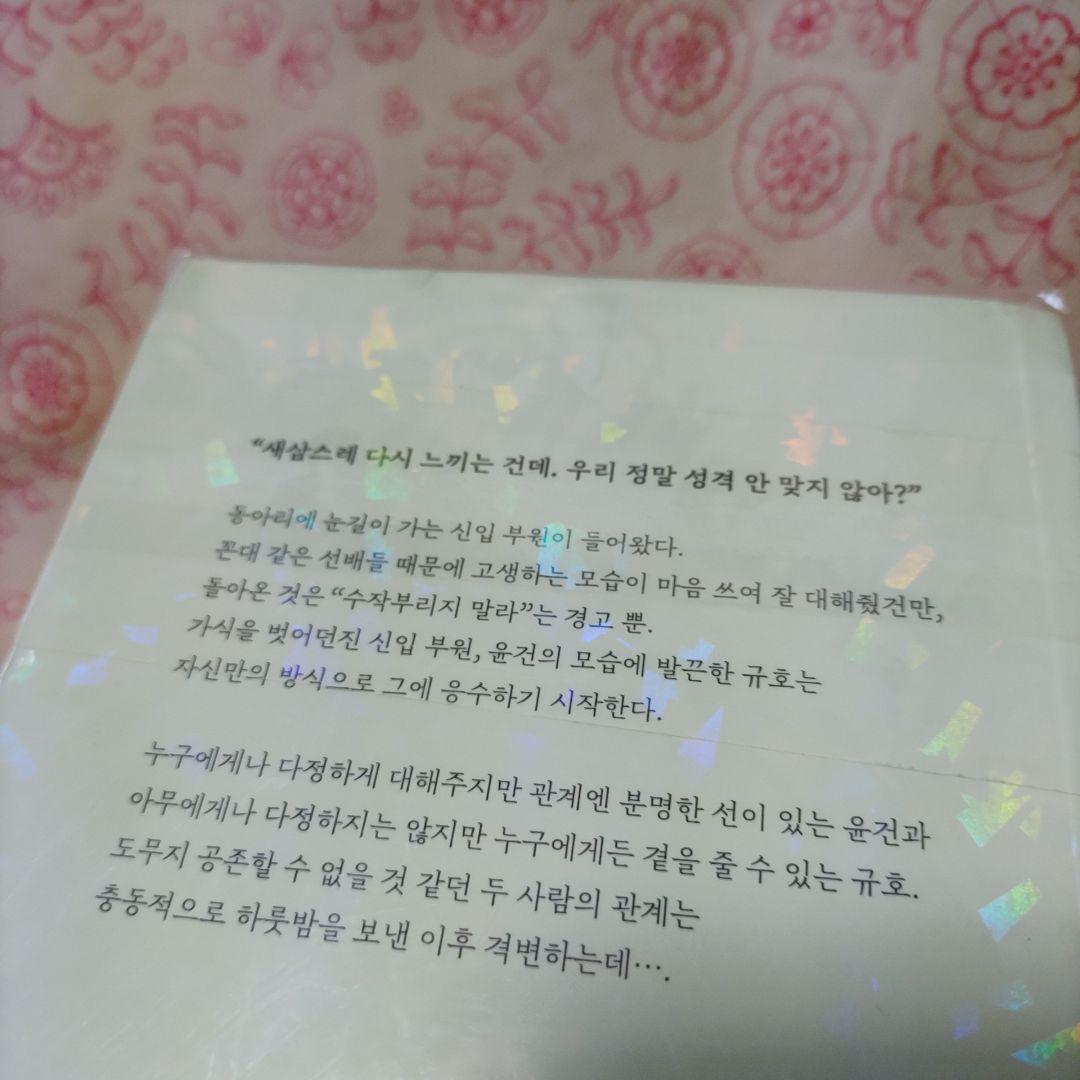 “새삼스레 다시 느끼는 건데. 우리 정말 성격 안 맞지 않아?”
동아리에 눈길이 가는 신입 부원이 들어왔다.
꼰대 같은 선배들 때문에 고생하는 모습이 마음 쓰여 잘 대해줬건만,
돌아온 것은 “수작부리지 말라”는 경고 뿐.
가식을 벗어던진 신입 부원, 윤건의 모습에 발끈한 규호는
자신만의 방식으로 그에 응수하기 시작한다.
누구에게나 다정하게 대해주지만 관계엔 분명한 선이 있는 윤건과
아무에게나 다정하지는 않지만 누구에게든 곁을 줄 수 있는 규호.
도무지 공존할 수 없을 것 같던 두 사람의 관계는
충동적으로 하룻밤을 보낸 이후 격변하는데….